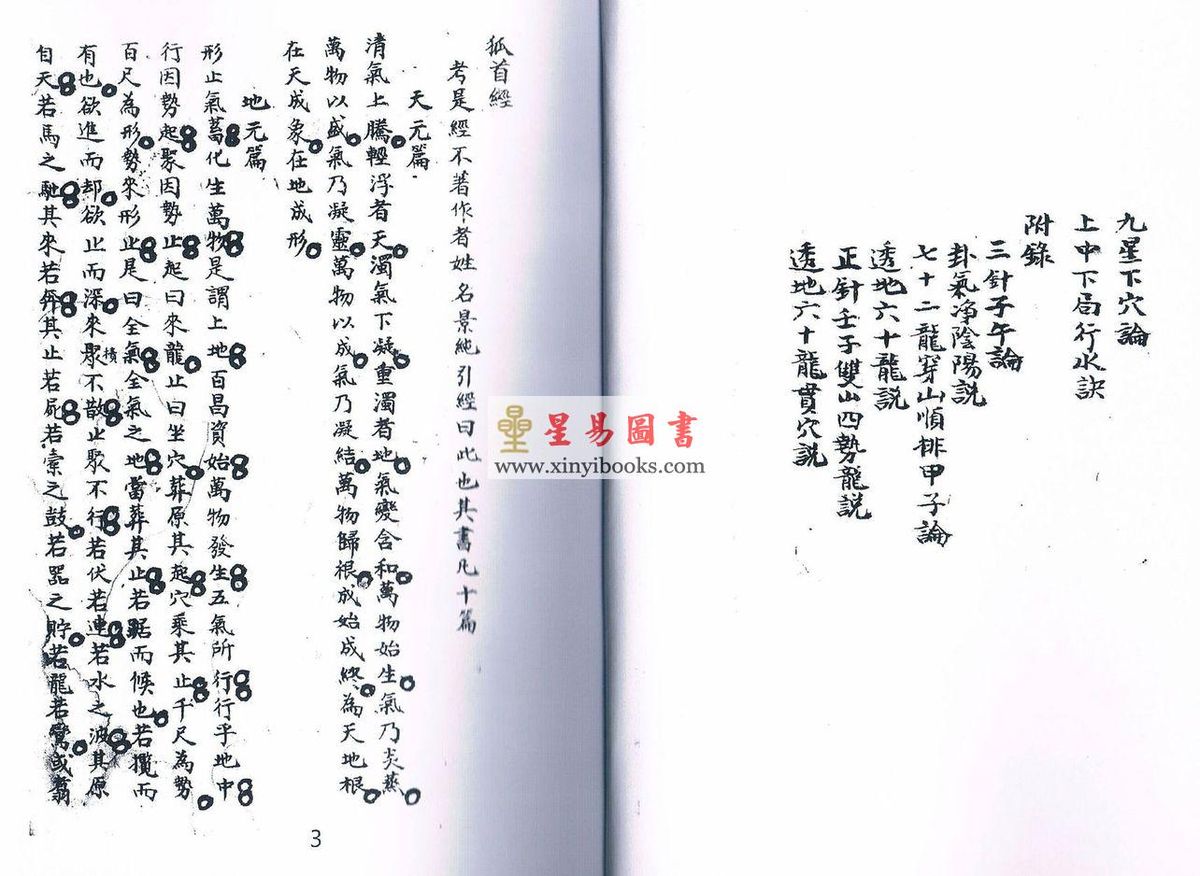 九星下穴論
上中下局行水訣
附錄
三針子午論
卦氣净陰陽説
七十二龍穿山順排甲子論
透地六十龍説
正針壬子雙山四勢龍説
透地六十龍貫穴説
狐首經
考是經不著作者姓名景純引經曰此也其書凡十篇
天元篇
清氣上騰輕浮者天濁氣下凝重濁者地氣變含和萬物始生氣乃炎蒸
萬物以盛氣乃凝靈萬物以成氣乃凝結萬物歸根成始成終為天地根
在天成象在地成形
地元篇
形止氣蓄化生萬物是謂上地百昌資始萬物發生五氣所行行乎地中
行因勢起聚因勢止起曰來龍止曰坐穴葬原其起穴乘其止千尺為勢
百尺為形勢來形止是曰全氣全氣之地當葬其止若踞而候也若攬而
有也欲進而却欲止而深來聚積不散止聚不行若伏若連若水之波其原
自天若馬之馳其來若奔其止若屍若橐之鼓若器之貯若龍若鸞或翥
星易圖書
www.xinyibooks.com
3